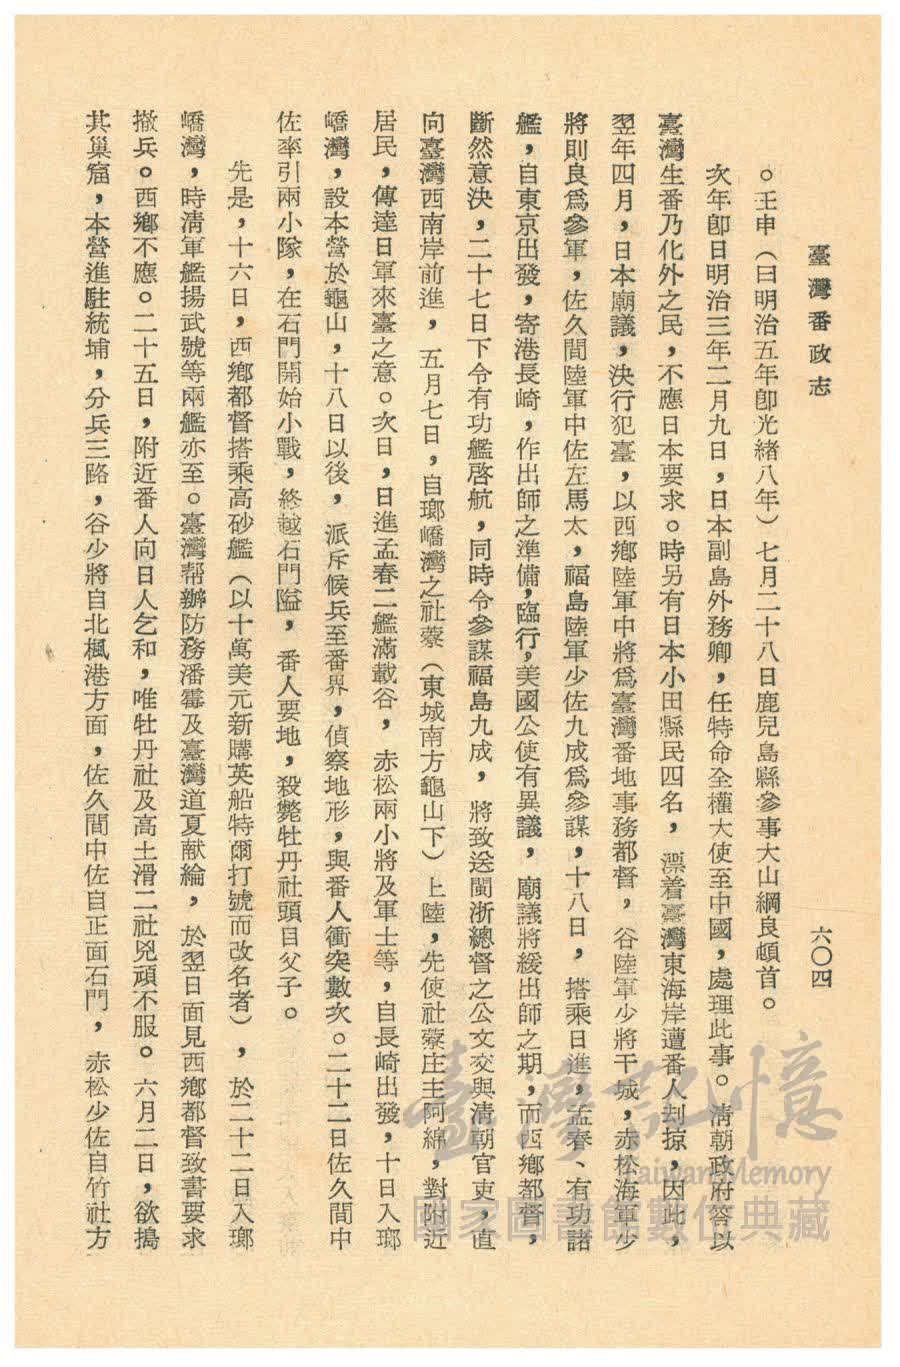 臺灣番政志
六〇四
。壬申（曰明治五年卽光緒八年）七月二十八日鹿兒島縣參事大山綱良頓首。
次年卽日明治三年二月九日，日本副島外務卿，任特命全權大使至中國，處理此事。淸朝政府答以
臺灣生番乃化外之民，不應日本要求。時另有日本小田縣民四名，漂着臺灣東海岸遭番人刦掠，因此，
翌年四月，日本廟議，決行犯臺，以西鄕陸軍中將爲臺灣番地事務都督，谷陸軍少將干城，赤松海軍少
將則良爲參軍，佐久間陸軍中佐左馬太，福島陸軍少佐九成爲參謀，十八日，搭乘日進，孟春、有功諸
艦，自東京出發，寄港長崎，作出師之準備，臨行，美國公使有異議，廟議將緩出師之期，而西鄕都督，
斷然意決，二十七日下令有功艦啓航，同時令參謀福島九成，將致送閩浙總督之公文交與淸朝官吏，直
向臺灣西南岸前進，五月七日，自瑯嶠灣之社藔（東城南方龜山下）上陸，先使社藔庄主阿綿，對附近
居民，傳達日軍來臺之意。次日，日進孟春二艦滿載谷，赤松兩小將及軍士等，自長崎出發，十日入瑯
嶠灣，設本營於龜山，十八日以後，派斥候兵至番界，偵察地形，與番人衝突數次。二十二日佐久間中
佐率引兩小隊，在石門開始小戰，終越石門隘，番人要地，殺斃牡丹社頭目父子。
先是，十六日，西鄕都督搭乘高砂艦（以十萬美元新購英船特爾打號而改名者），於二十二日入瑯
嶠灣，時淸軍艦揚武號等兩艦亦至。臺灣帮辦防務潘霨及臺灣道夏献綸，於翌日面見西鄕都督致書要求
撤兵。西鄕不應。二十五日，附近番人向日人乞和，唯牡丹社及高士滑二社兇頑不服。六月二日，欲搗
其巢窟，本營進駐統埔，分兵三路，谷少將自北楓港方面，佐久間中佐自正面石門，赤松少佐自竹社方
臺灣記憶
Taiwan Memory
國家圖書館數位典藏